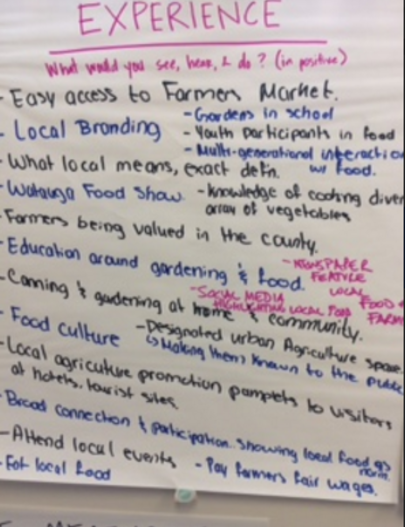 EXPERIENCE
What would you see, hear, & do? (in positive)
- Easy access to Farmers Market.
- Gardens in school
- Local Branding
- Youth participants in food
- Multi-generational interaction
w/ food.
- What local means, exact defn.
- Watauga Food Show.
- Knowledge of cooking diver
array of vegetables
- Farmers being valued in the county.
- Education around gardening & food.
- NEWSPAPER
FEATURE
LOCAL
FOOD &
FARM
- Canning & gardening at home & community.
- SOCIAL MEDIA
HIGHLIGHTING LOCAL FOOD
- Food culture
- Designated urban Agriculture space.
↳ Making them known to the public
- Local agriculture promotion pamplets to visitors
at hotels, tourist sites.
- Broad connection & participation. Showing local food as
norm.
- Attend local events
- Eat local food
- Pay farmers fair wages.